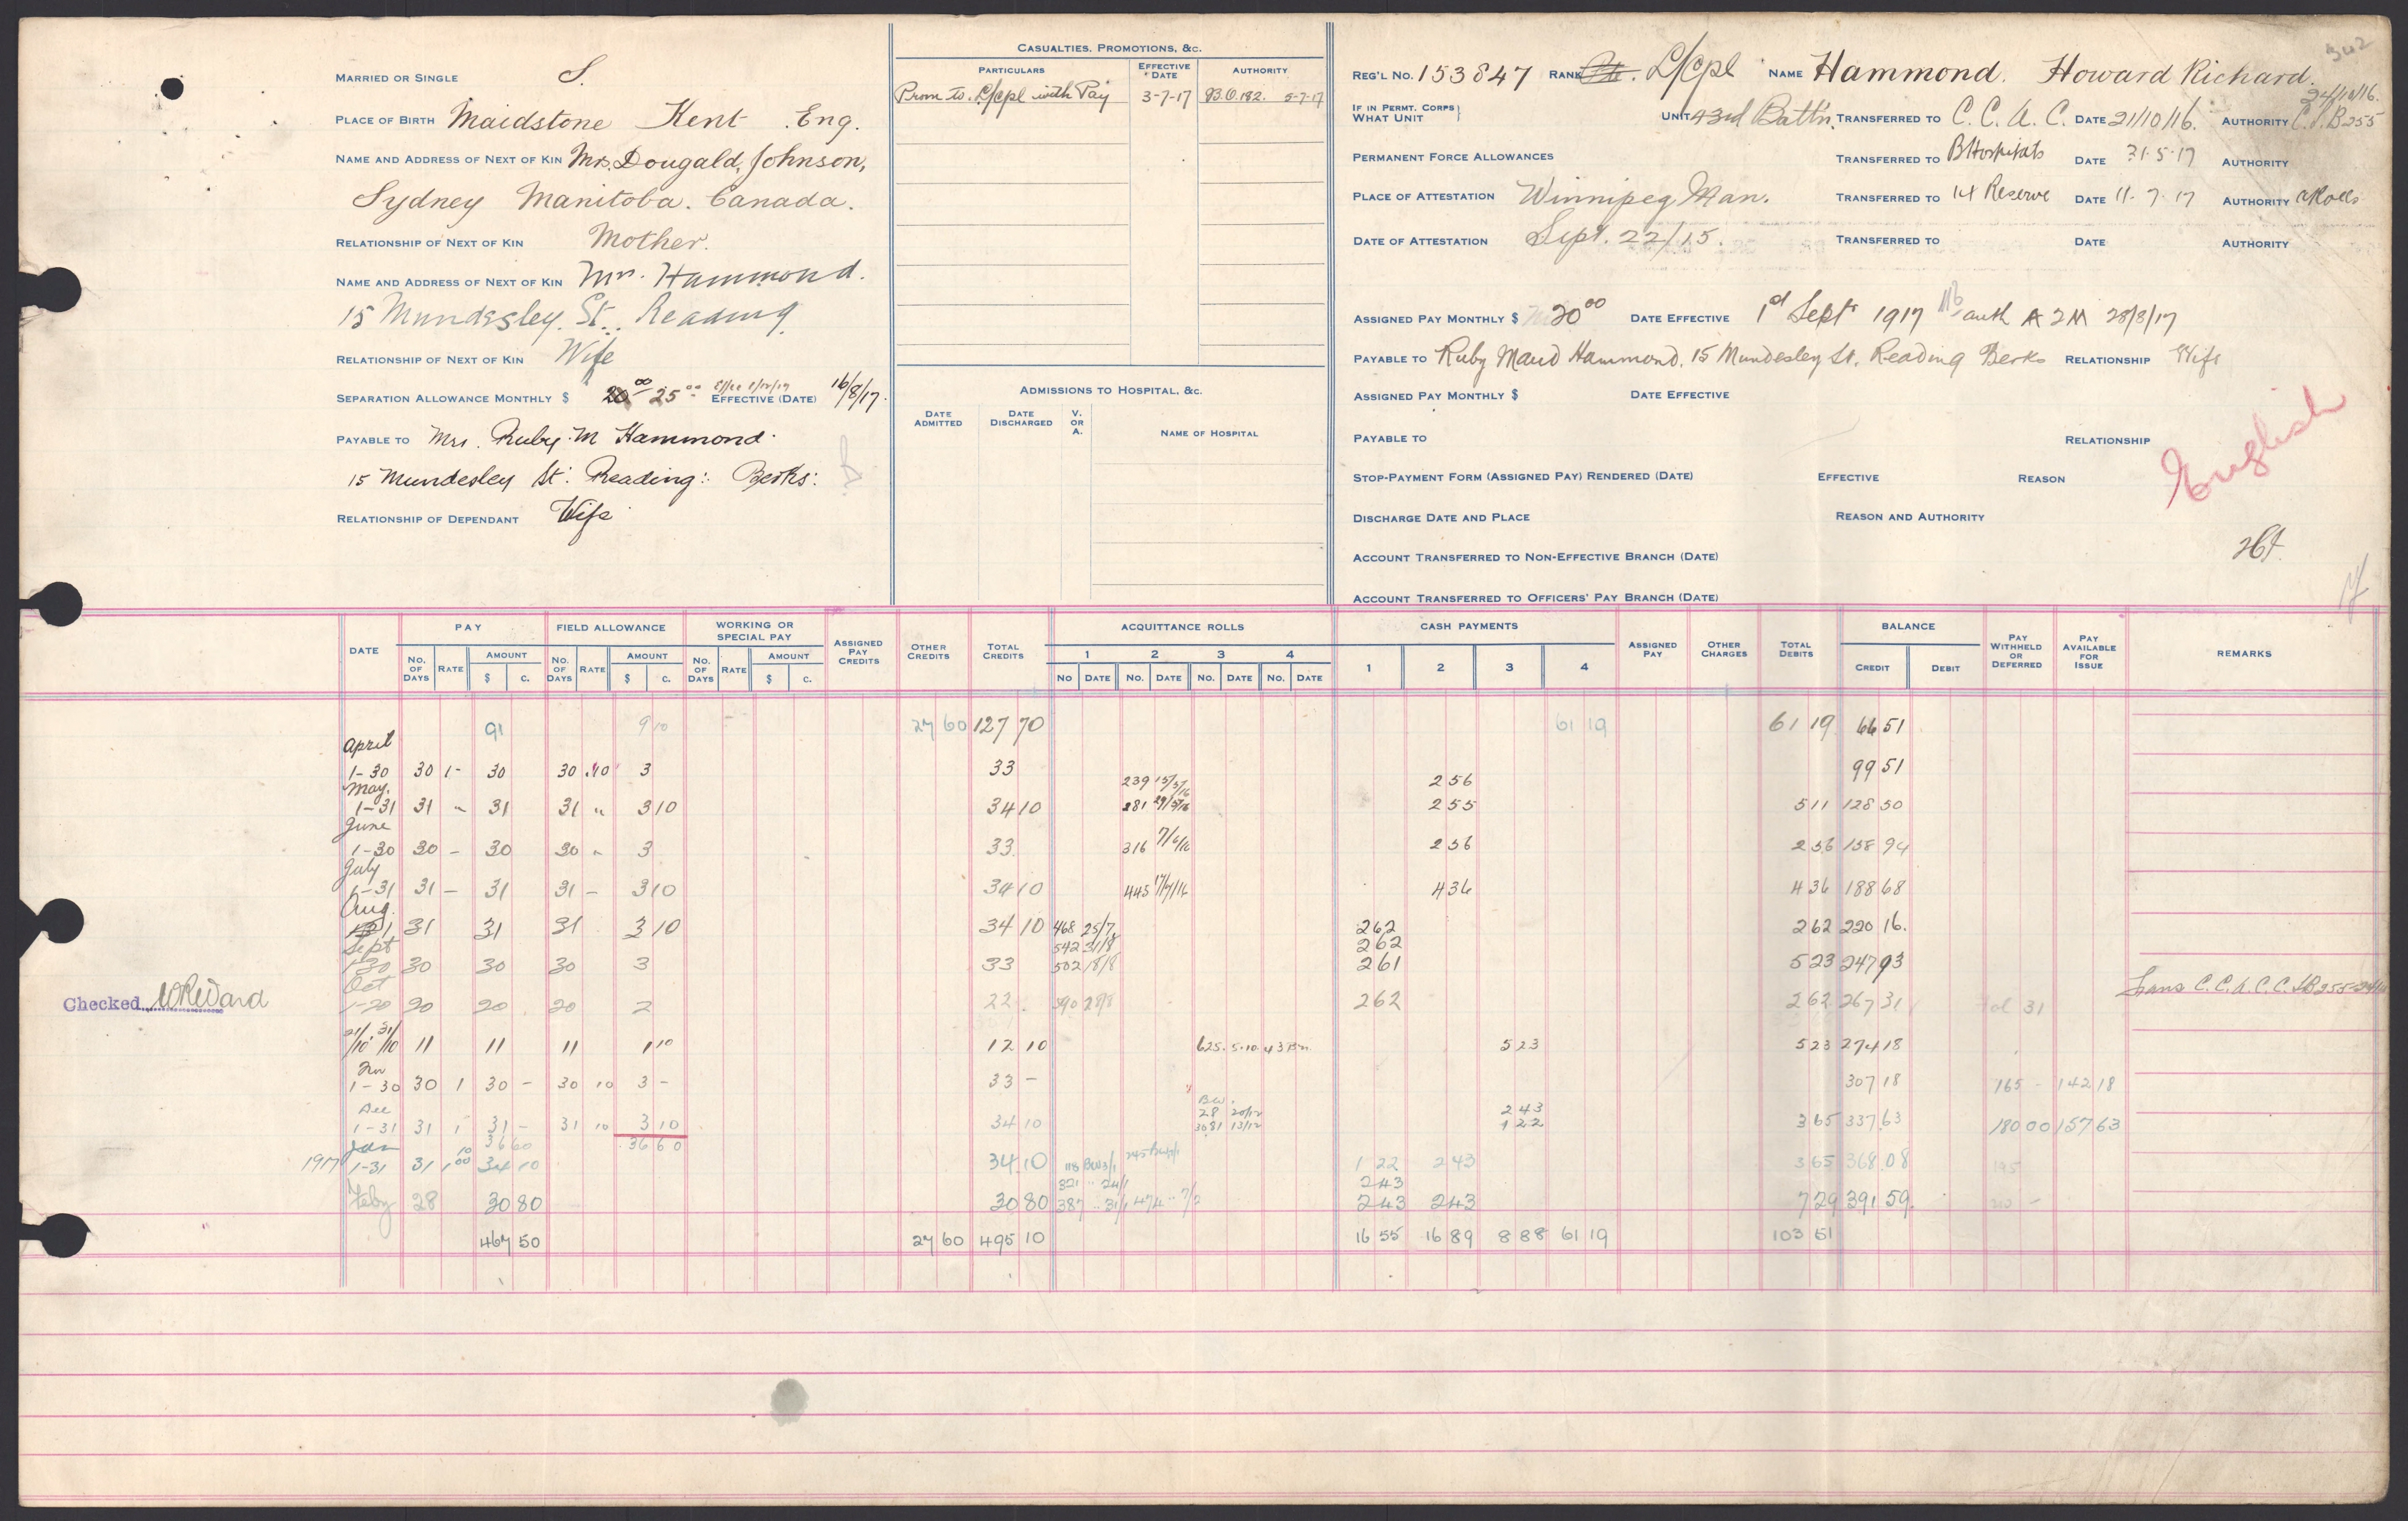 MARRIED OR SINGLE S.
PLACE OF BIRTH Maidstone Kent Eng.
NAME AND ADDRESS OF NEXT OF KIN Mrs. Dougald, Johnson,
Sydney Manitoba. Canada.
RELATIONSHIP OF NEXT OF KIN Mother.
NAME AND ADDRESS OF NEXT OF KIN Mrs. Hammond.
15 Mundesley. St. Reading
RELATIONSHIP OF NEXT OF KIN Wife
SEPARATION ALLOWANCE MONTHLY $ 20.00 25.00 EFFECTIVE (DATE) 16/8/17.
PAYABLE TO Mrs. Ruby. M Hammond.
15 Mundesley St: Reading: Berks:
RELATIONSHIP OF DEPENDANT Wife
CASUALTIES, PROMOTIONS, &c.
PARTICULARS EFFECTIVE DATE AUTHORITY
Prom to. L/Cpl with Pay 3-7-17 B.O.182. 5-7-17
ADMISSIONS TO HOSPITAL, &c.
DATE ADMITTED DATE DISCHARGED V. OR A. NAME OF HOSPITAL
342
REG'L NO. 153847 RANK Pte. L/Cpl NAME Hammond. Howard Richard.
24/10/16.
IF IN PERMT. CORPS WHAT UNIT UNIT 43rd Battn. TRANSFERRED TO C. C. A. C. DATE 21/10/16. AUTHORITY B255
PERMANENT FORCE ALLOWANCES TRANSFERRED TO B Hospitals DATE 31-5-17 AUTHORITY
PLACE OF ATTESTATION Winnipeg Man. TRANSFERRED TO 14 Reserve DATE 11-7-17 AUTHORITY
DATE OF ATTESTATION Sept. 22/15. TRANSFERRED TO DATE AUTHORITY
ASSIGNED PAY MONTHLY $ 20.00 DATE EFFECTIVE 1st Sept 1917 auth A 2 M 28/8/17
PAYABLE TO Ruby Maud Hammond, 15 Mundesley St. Reading Berks RELATIONSHIP Wife
ASSIGNED PAY MONTHLY $ DATE EFFECTIVE
PAYABLE TO RELATIONSHIP
English
STOP-PAYMENT FORM (ASSIGNED PAY) RENDERED (DATE) EFFECTIVE REASON
DISCHARGE DATE AND PLACE REASON AND AUTHORITY
ACCOUNT TRANSFERRED TO NON-EFFECTIVE BRANCH (DATE)
ACCOUNT TRANSFERRED TO OFFICERS' PAY BRANCH (DATE)
DATE PAY FIELD ALLOWANCE WORKING OR SPECIAL PAY ASSIGNED PAY CREDITS OTHER CREDITS TOTAL CREDITS ACQUITTANCE ROLLS CASH PAYMENTS ASSIGNED PAY OTHER CHARGES TOTAL DEBITS BALANCE PAY WITHHELD OR DEFERRED PAY AVAILABLE FOR ISSUE REMARKS
NO. OF DAYS RATE AMOUNT $ C. NO. OF DAYS RATE AMOUNT $ C. NO. OF DAYS RATE AMOUNT $ C. 1 2 3 4 NO DATE NO. DATE NO. DATE NO. DATE 1 2 3 4 CREDIT DEBIT
91 9 10 27 60 127 70 61 19 61 19 66 51
April
1-30 30 1- 30 30 .10 3 33 99 51
May. 239 15/5/16 2 56
1-31 31 " 31 31 " 3 10 34 10 281 29/5/16 2 55 5 11 128 50
June
1-30 30 - 30 30 " 3 33 316 7/6/16 2 56 2 56 158 94
July
1-31 31 - 31 31 - 3 10 34 10 445 17/7/16 4 36 4 36 188 68
Aug.
31 31 31 3 10 34 10 468 25/7 2 62 2 62 220 16.
Sept 542 31/8 2 62
1-30 30 30 30 3 33 502 18/8 2 61 5 23 247 93
Oct
1-20 20 20 20 2 22. 28/8 2 62 2 62 267 31 Trans C.C.A.C.
Checked W R Ward
21/10 31/10 11 11 11 1 10 12 10 625. 5-10 43 Bn. 5 23 5 23 274 18
Nov
1-30 30 1 30 - 30 10 3 - 33 - 307 18 165 - 142 18
Dec 28 20/12 2 43
1-31 31 1 31 - 31 10 3 10 34 10 3081 13/12 1 22 3 65 337 63 180 00 157 63
Jan 36 60 36 60
1917 1-31 31 1.00 10 34 10 34 10 1 22 2 43 3 65 368.08 195
321 " 24/1 2 43
Feby 28 30 80 30 80 387 " 31/1 474 " 7/2 2 43 2 43 7 29 391 59.
467 50 27 60 495 10 16 55 16 89 8 88 61 19 103 51